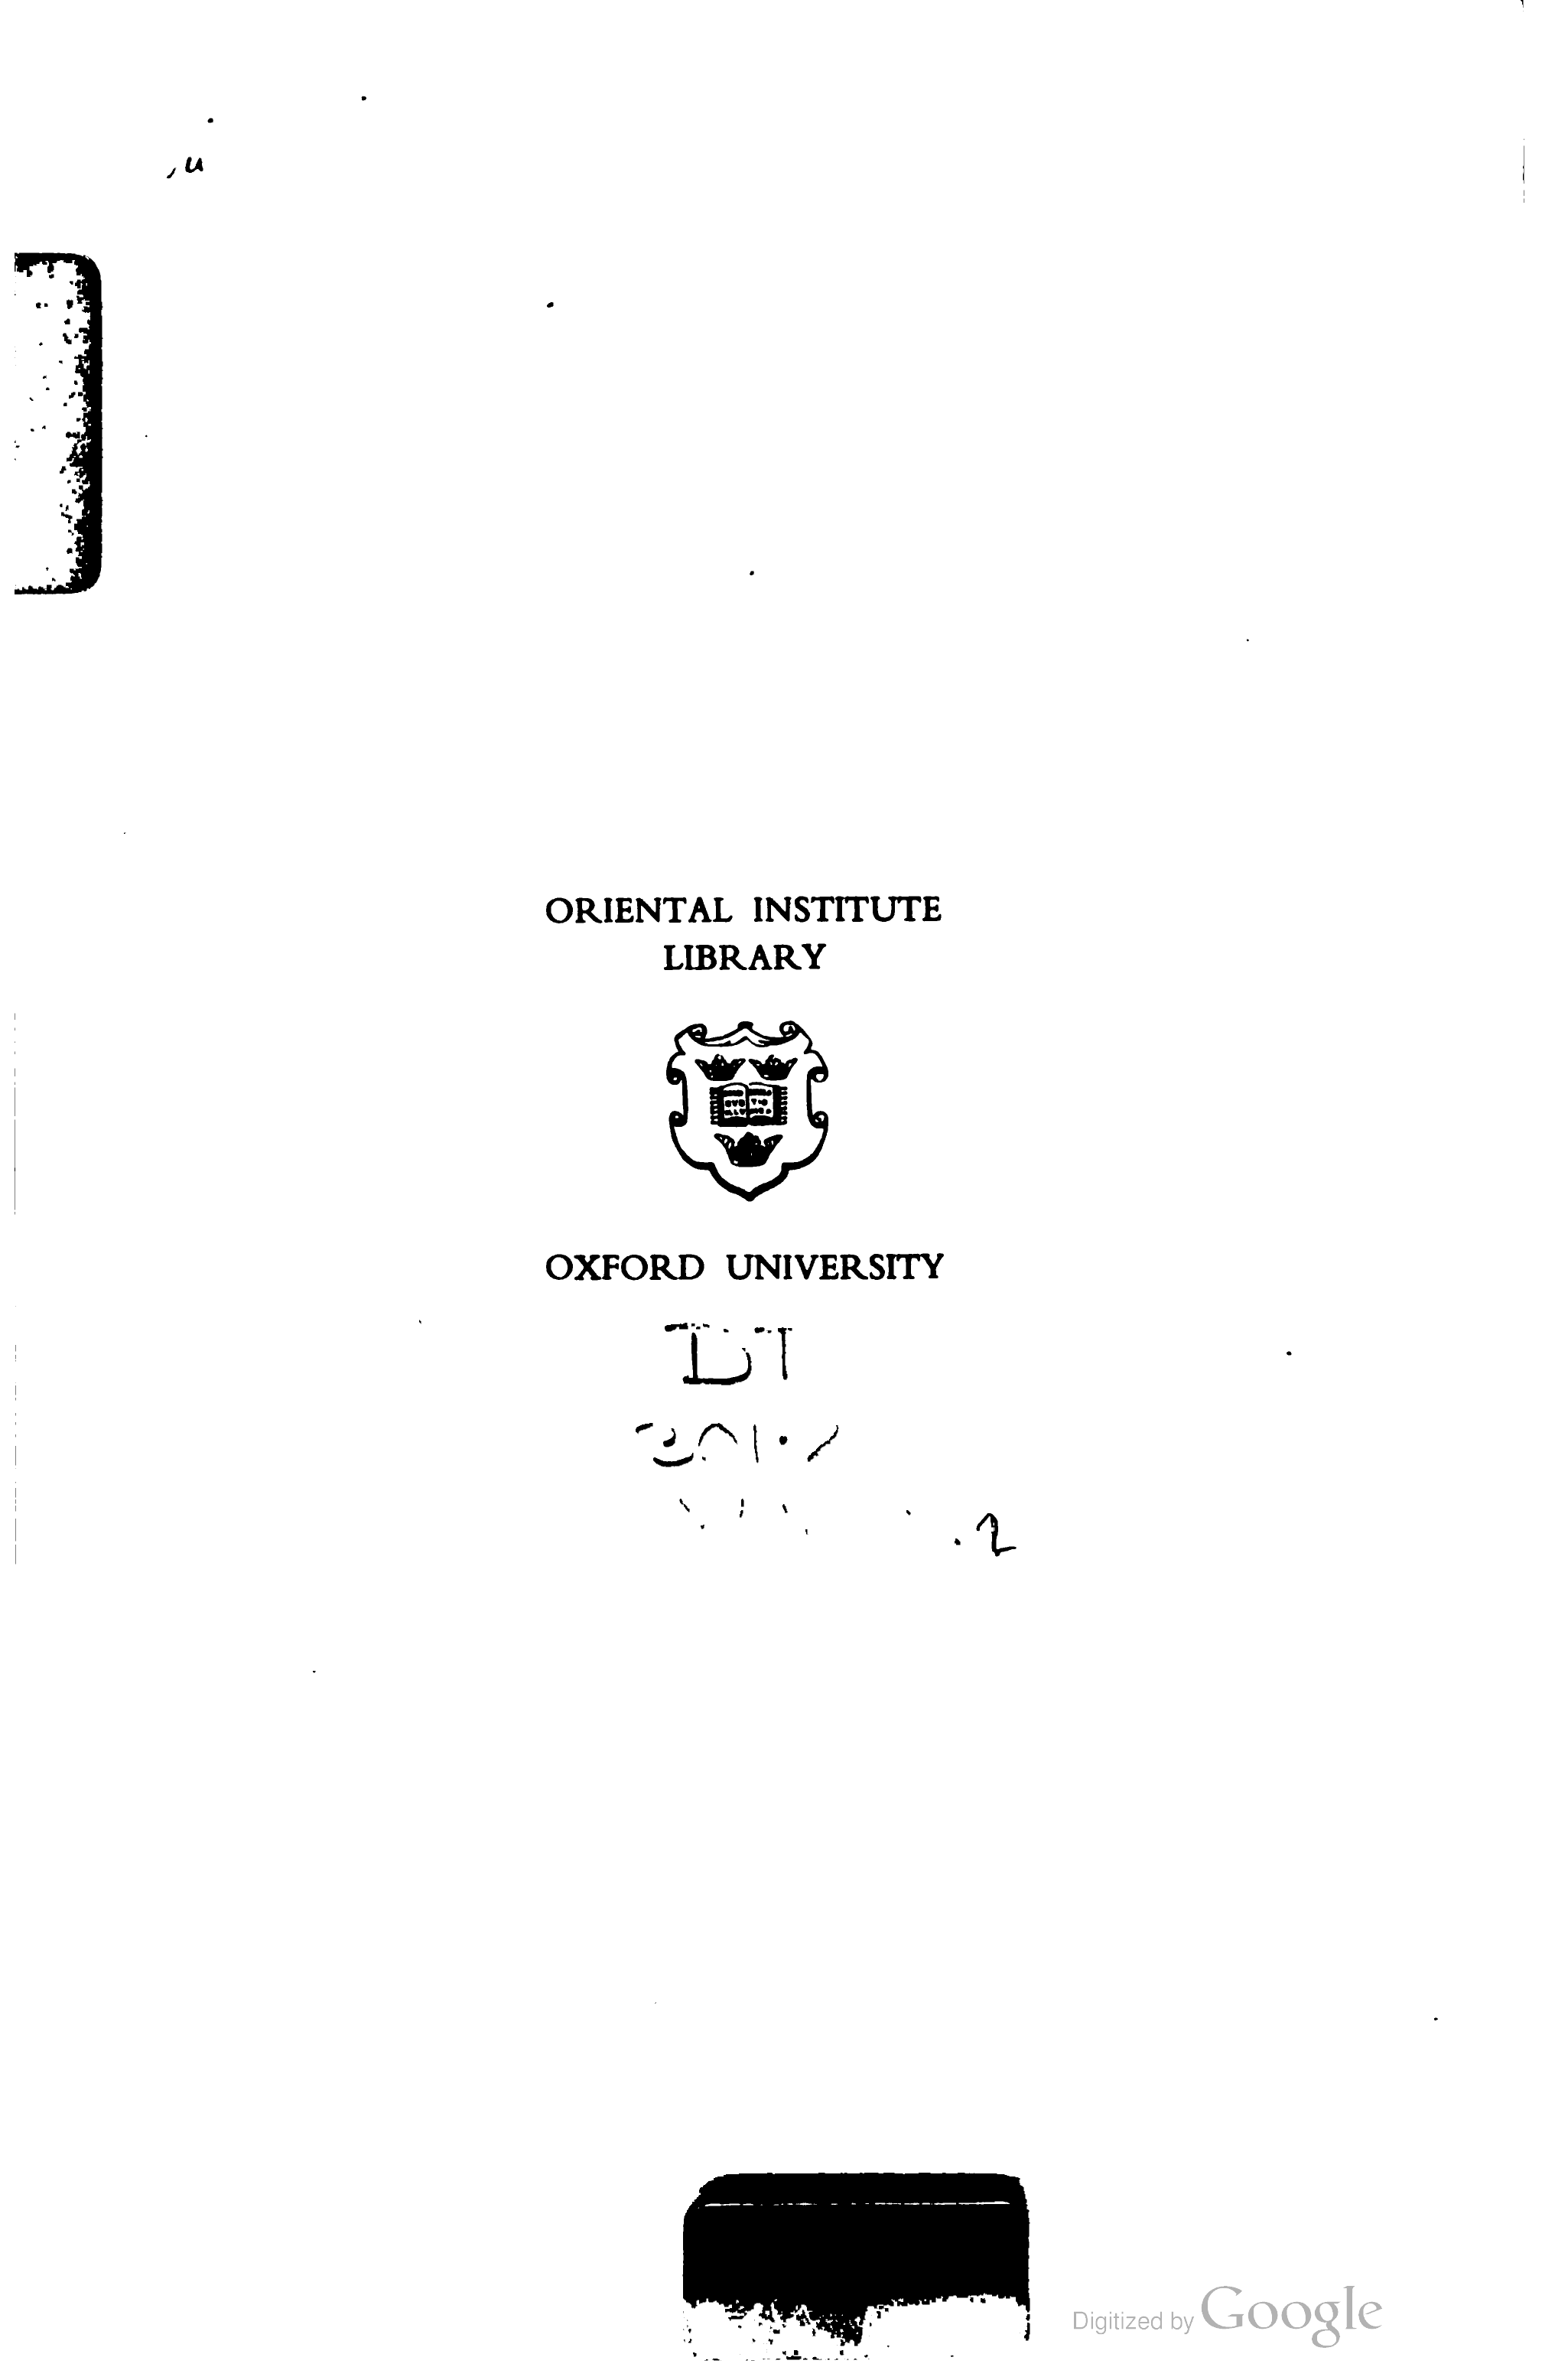 ORIENTAL INSTITUTE
LIBRARY
OXFORD UNIVERSITY
DT
.2
Digitized by Google